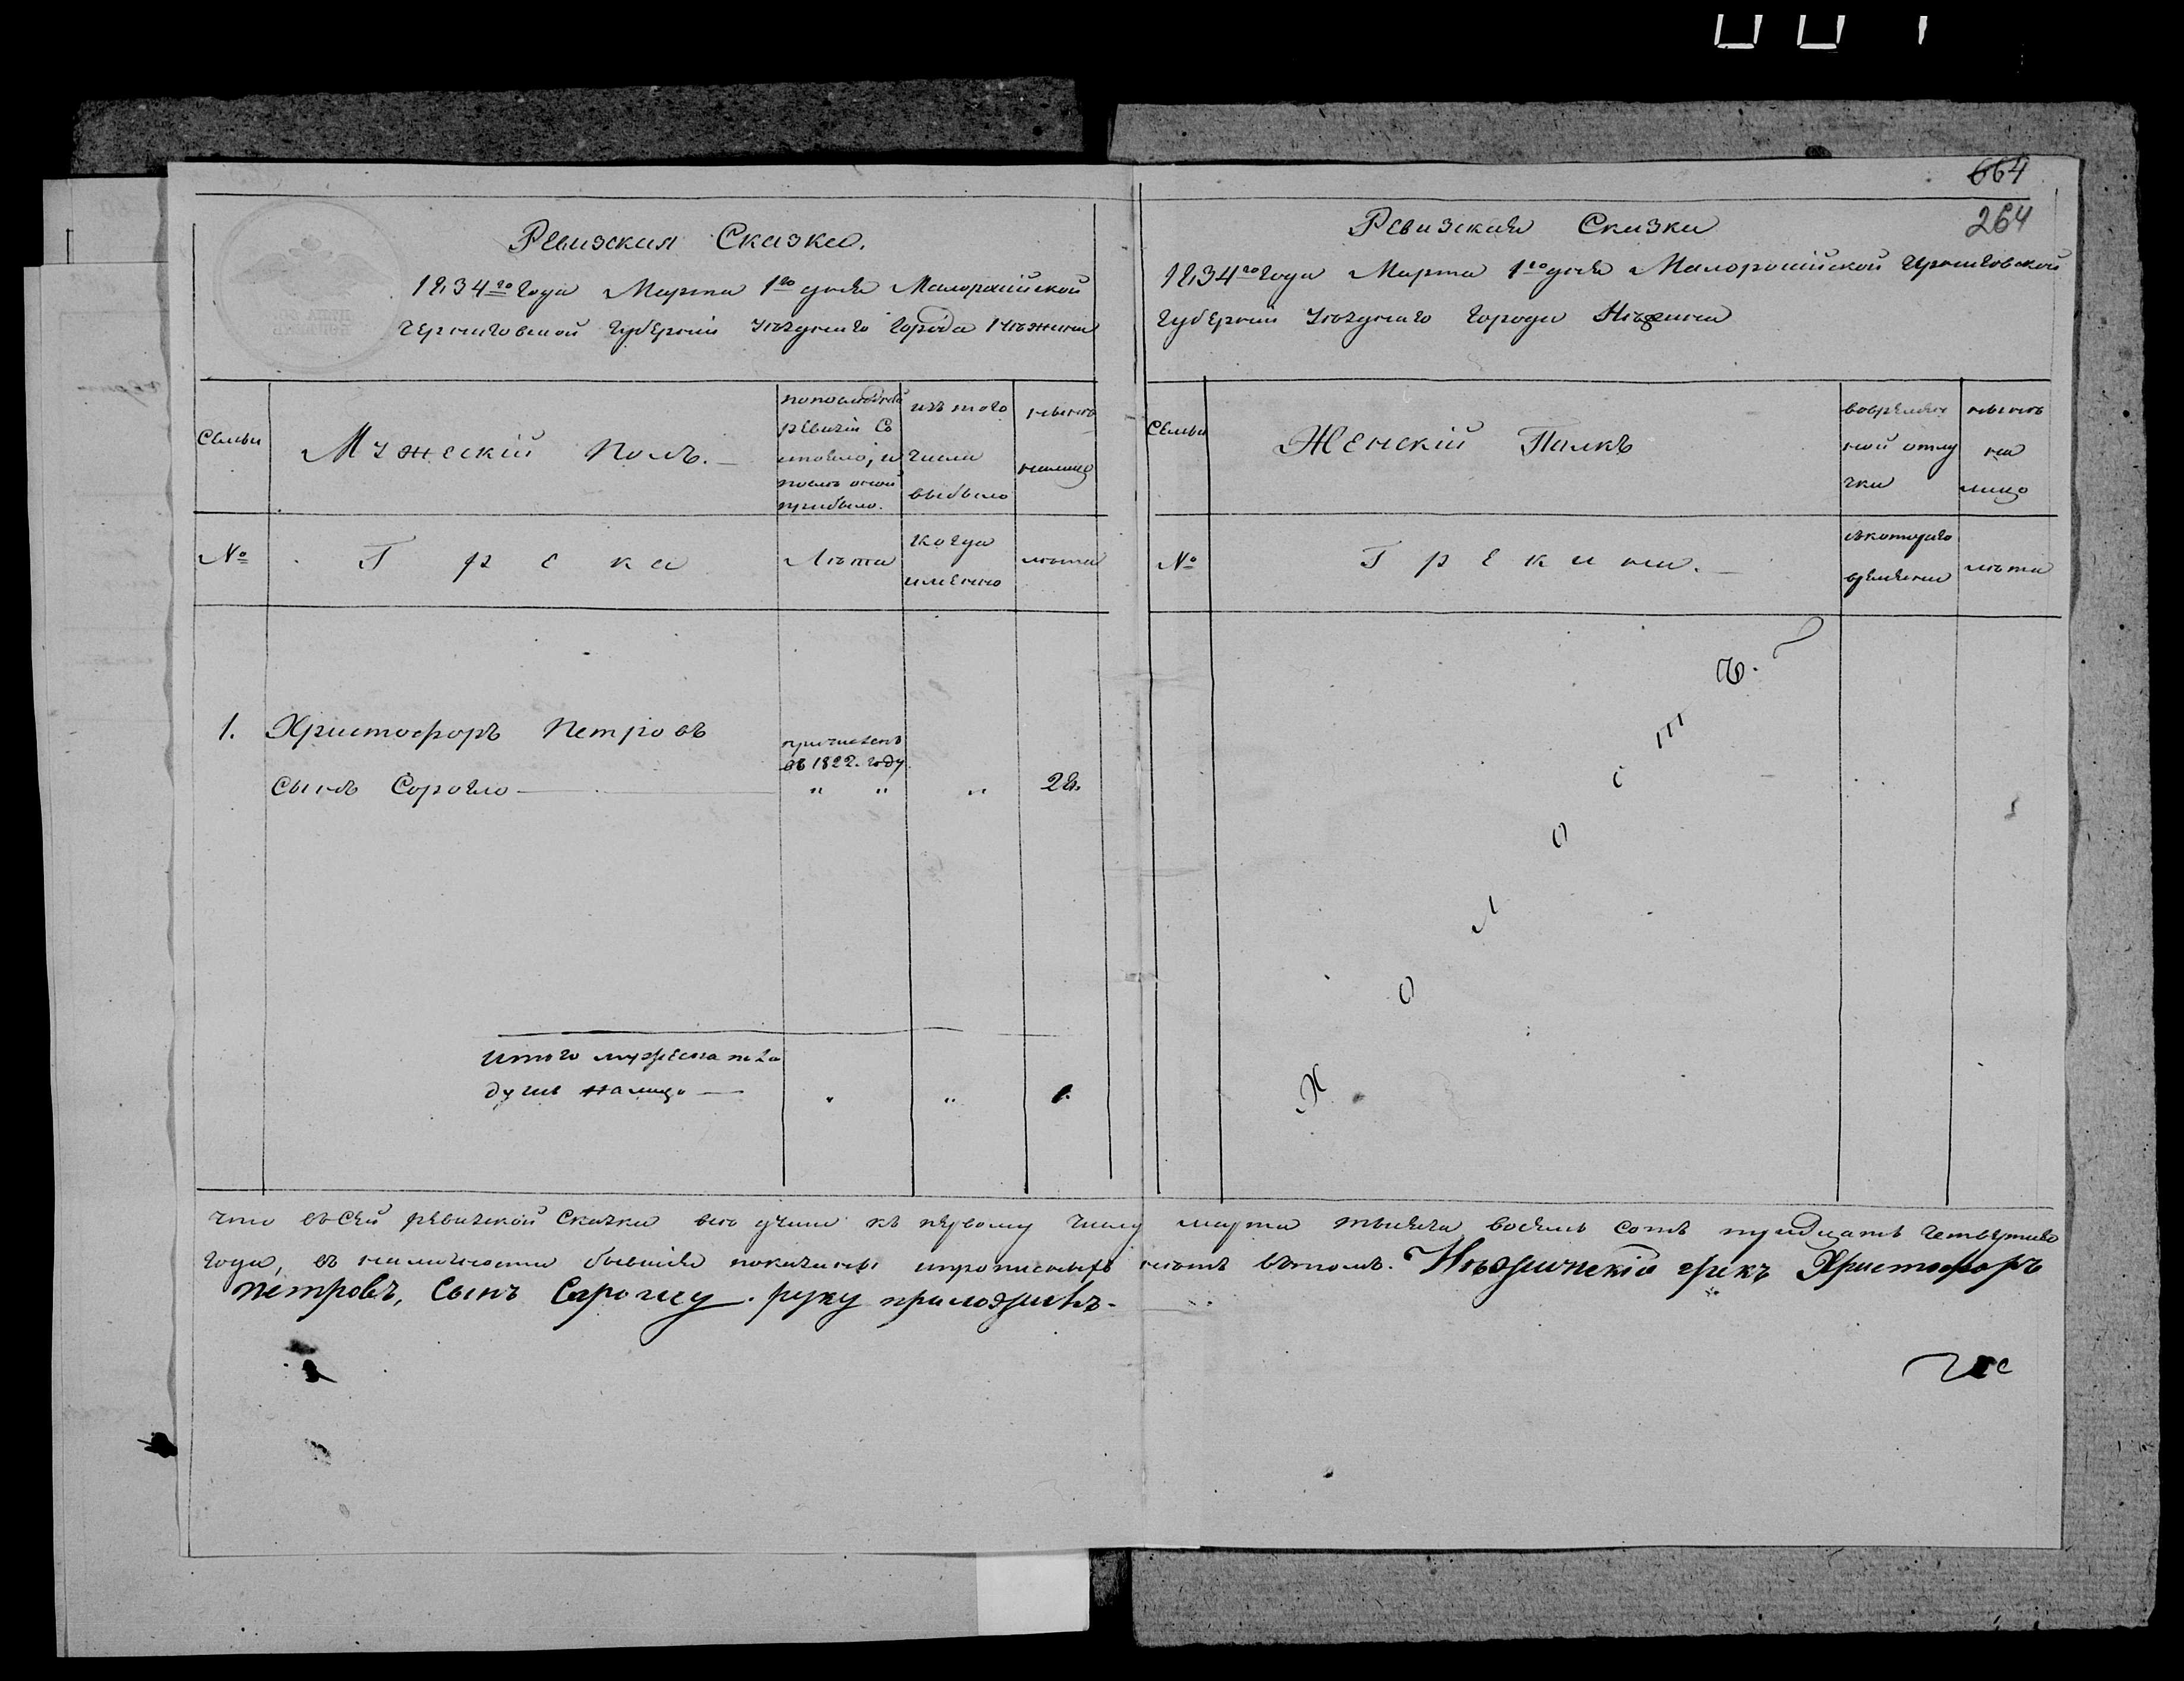 664
264
Ревизская Сказка.
1834го года Марта 1го дня Малороссийской
Черниговской Губернии уѣзднаго Города Нѣжина
Семьи
Мужеский Полъ.
по последней
ревизии Со
стояло, и
после оной
прибыло.
изъ того
числа
выбыло
нынѣ
налицо
№
Грека
Лѣта
когда
именно
лѣта
1. Христофоръ Петровъ
причисленъ
въ 1822. году
сынъ
" " " 28.
Итого мужеска пола
душъ налицо — " " 1.
Ревизская Сказка
1834го года Марта 1го дня Малороссийской Черниговской
Губернии уѣзднаго города Нѣжина
Семьи
Женский Полкъ
вовремен
ной отлу
чки
нынѣ
на
лицо
№
Грекини.
съ котораго
времени
лѣта
Холостъ.
что въ сей ревизской Сказки все души къ первому числу марта тысяча восемь сотъ тридцать четвертаго
года, въ наличности бывшия показаны и прописныхъ нѣтъ въ томъ. Нѣжинский грекъ Христофоръ
Петровъ, Сынъ руку приложилъ.